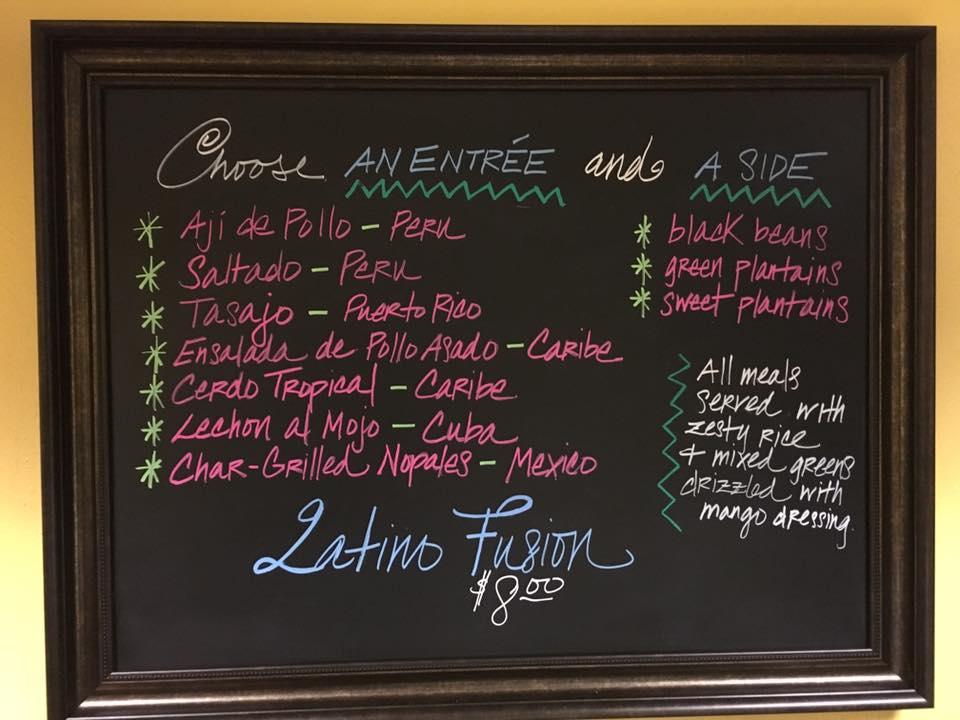 Choose AN ENTRÉE and A SIDE
* Ají de Pollo – Peru
* Saltado – Peru
* Tasajo – Puerto Rico
* Ensalada de Pollo Asado – Caribe
* Cerdo Tropical – Caribe
* Lechon al Mojo – Cuba
* Char-Grilled Nopales – Mexico
* black beans
* green plantains
* sweet plantains
All meals
served with
zesty rice
+ mixed greens
drizzled with
mango dressing.
Latino Fusion
$8.00